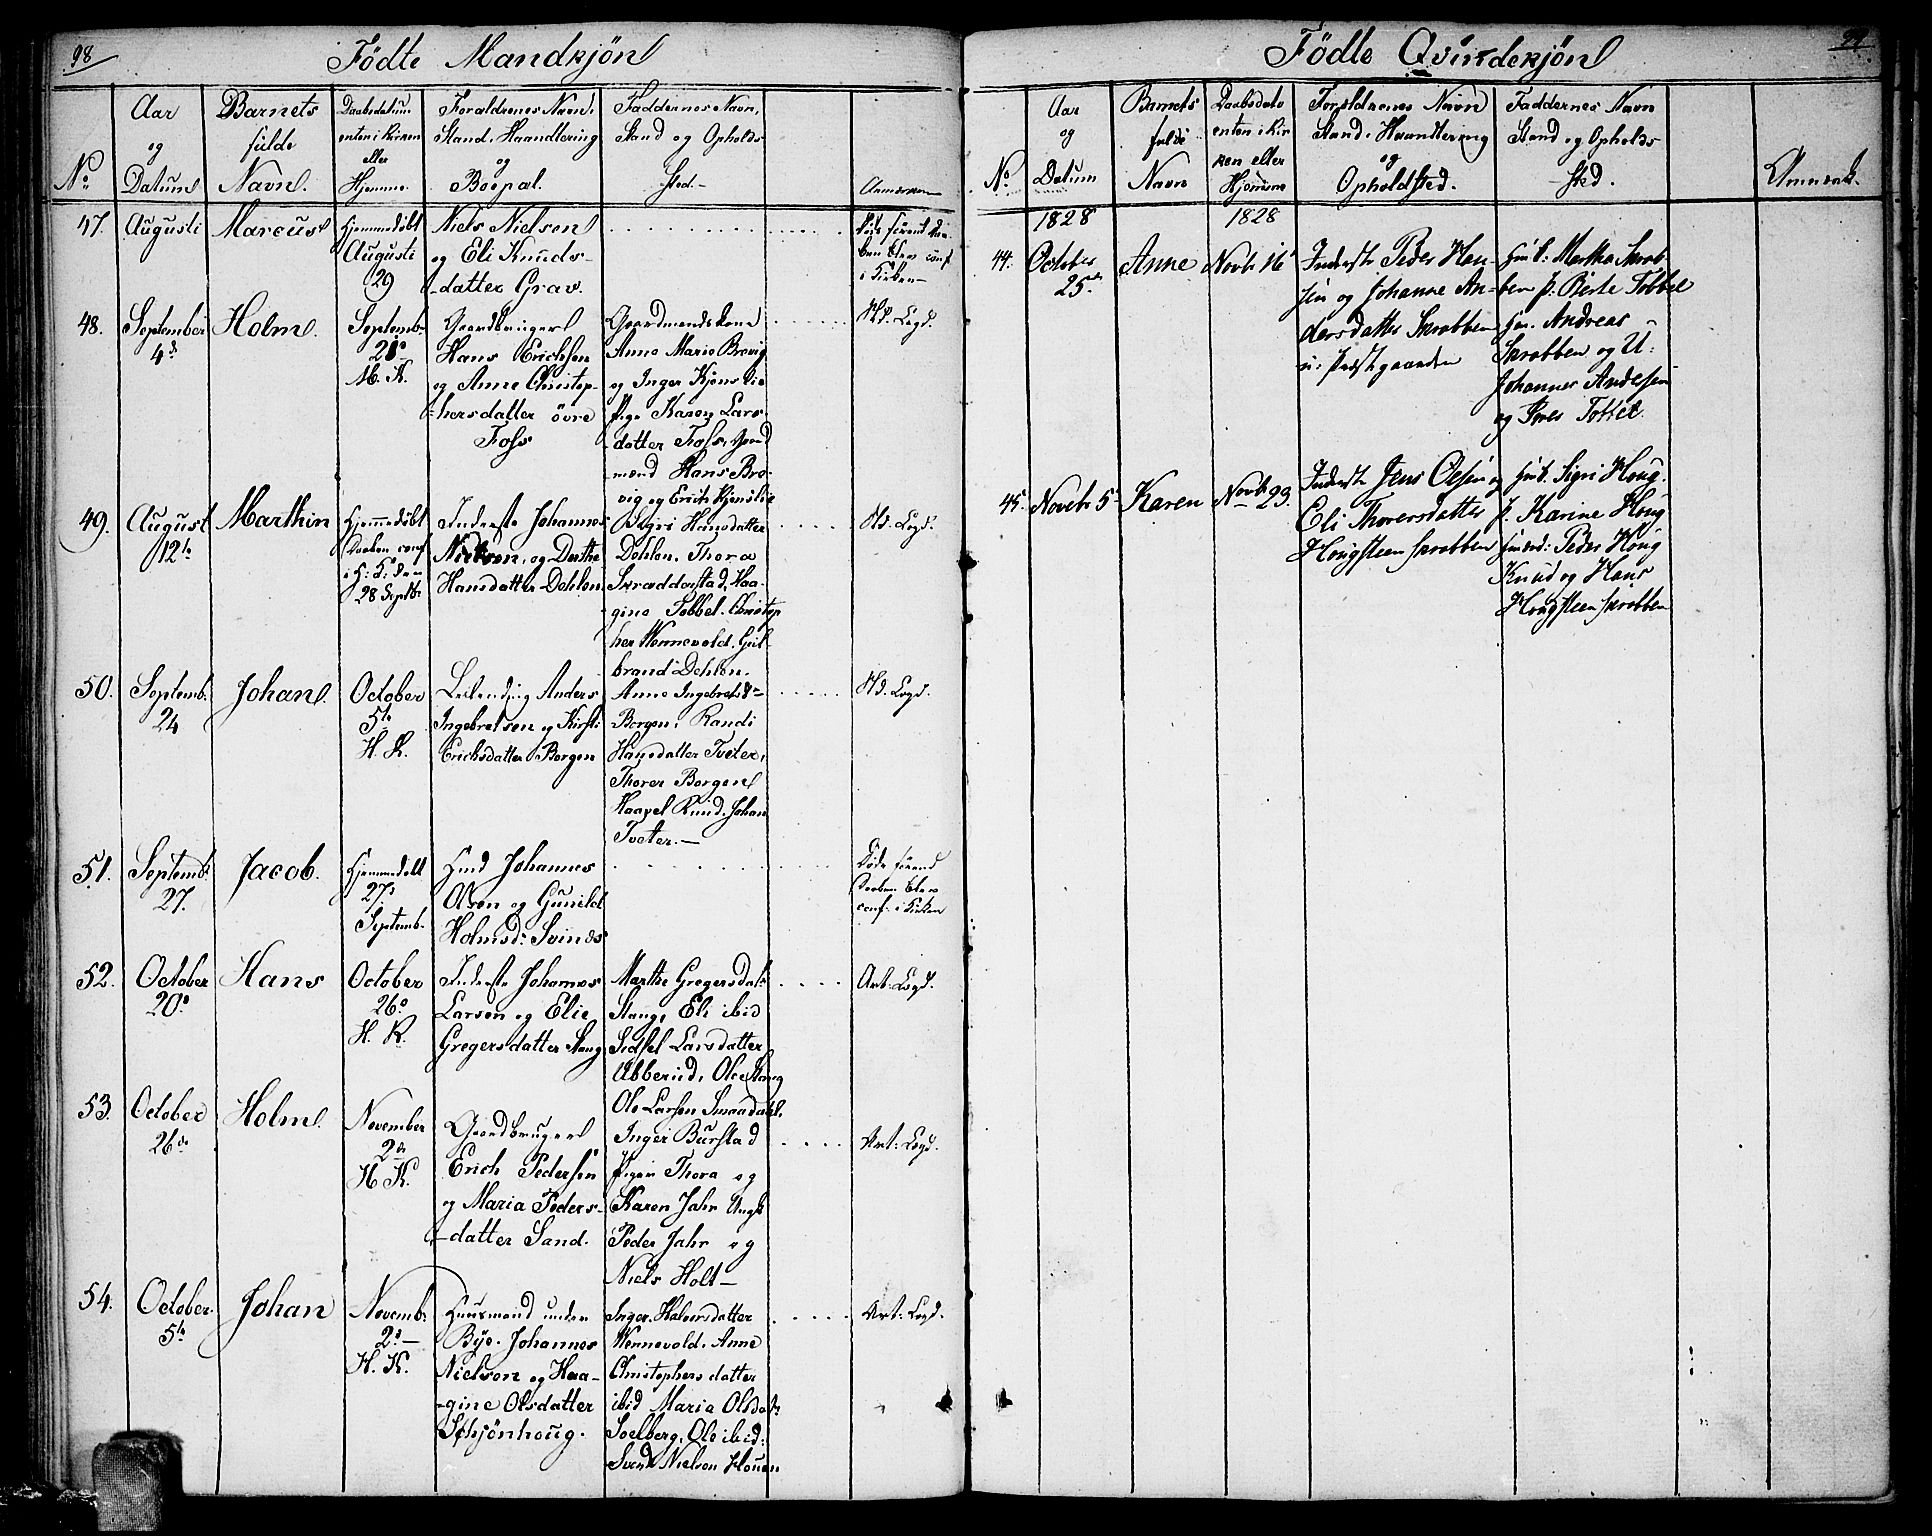 98
Födte Mandkjön
No
Aar
og
Datum
Barnets
fulde
Navn.
Daabsdatum
enten i Kirken
eller
Hjemme
Foraldrenes Navn,
Stand, Haandtering
og
Boepæl.
Faddernes Navn,
Stand og Opholds
sted.
Anmærkn
47.
Augusti
Marcus
Hjemmedöbt
Augusti
29
Niels Nielsen
og Eli Knuds-
-datter Grav.
Döde förend
conf
i Kirken
48.
September
4de
Holm.
Septemb.
21
M. K.
Gaardbruger
Hans Erichsen
og Anne Christop-
hersdatter övre
Foss
Gaardmandskone
Anne Marie Brovig
og Inger Kjensdie
Pige Karen Lars-
datter Foss, Gaard
mænd Hans Bro-
vig og Erich Kjensdie
Nd. Lægd.
49.
August
12te
Marthin
Hjemmedöbt
Daaben conf
i H: K: den
28 Septb
Inderste Johannes
Nielsen, og Dorthe
Hansdatter Dehlen.
Sigri Hansdatter
Dehlen. Thora
Skræddarstad, Haa-
gine Tobbel. Christop
her Wennevold. Gul-
brand Dehlen.
Nd. Lægd.
50.
Septemb.
24
Johan.
October
5te
H. K.
Leilending Anders
Ingebretsen og Kirsti
Erichsdatter Borgen
Anne Ingebretsd
Borgen, Randi
Hansdatter Tveter,
Thorer Borgen
Haagel Ruud. Johan
Tveter.—
Nd. Lægd.
51.
Septemb.
27.
Jacob.
Hjemmedöbt
27.
Septemb.
Huusd Johannes
Olsen og Gunild
Holmsd: Svinds
Döde förend
Daaben blev
conf. i Kirken
52.
October
20
Hans
October
26
H. K.
Inderste Johannes
Larsen og Elie
Gregersdatter Stang
Marthe Gregersdatr
Stang, Eli ibid
Sidsel Larsdatter
Abberud, Ole Stang
Ole Larsen Smaadahl.
Art: Lægd.
53.
October
26de
Holm.
November
2de
H. K.
Gaardbruger
Erich Pedersen
og Maria Peders-
-datter Sand.
Inger Burstad
Pigen Thora og
Karen Jahr Ungk
Peder Jahr og
Niels Holt—
Art: Lægd.
54.
October
5te
Johan
Novemb.
2—
H. K.
Huusmand under
Bye. Johannes
Nielsen og Haa-
-gine Olsdatter
Schjönhoug.
Inger Halvorsdatter
Wennevold. Anne
Christophersdatter
ibid Maria Olsdat
Soelberg, Ole ibid:
Svend Nielsen Houen
Art: Lægd.
99
Födte Qvindekjön
No.
Aar
og
Datum
Barnets
fulde
Navn
Daabsdato
enten i Kir
ken eller
Hjemme
Forældrenes Navn
Stand, Haandtering
og
Opholdsted.
Faddernes Navn
Stand og Opholds
sted.
Anmærk.
1828
1828
44.
October
25
Anne
Novbr 16
Inderste Peder Han-
sen og Johanne An-
dersdatter Skrobben
u: Præstegaarden
Huusk: Martha Skrob-
ben P: Berte Tobbel
Andreas
Skrobben og U:
Johannes Andersen
og Tobbel.
45.
Novebr 5
Karen
Novbr 23.
Inderste Jens Olesen og
Eli Thorersdatter
Hougsteen Skrobben
Sigri Houg.
P. Karine Houg
Peder Houg
Knud og Hans
Hougsteen Skrobben